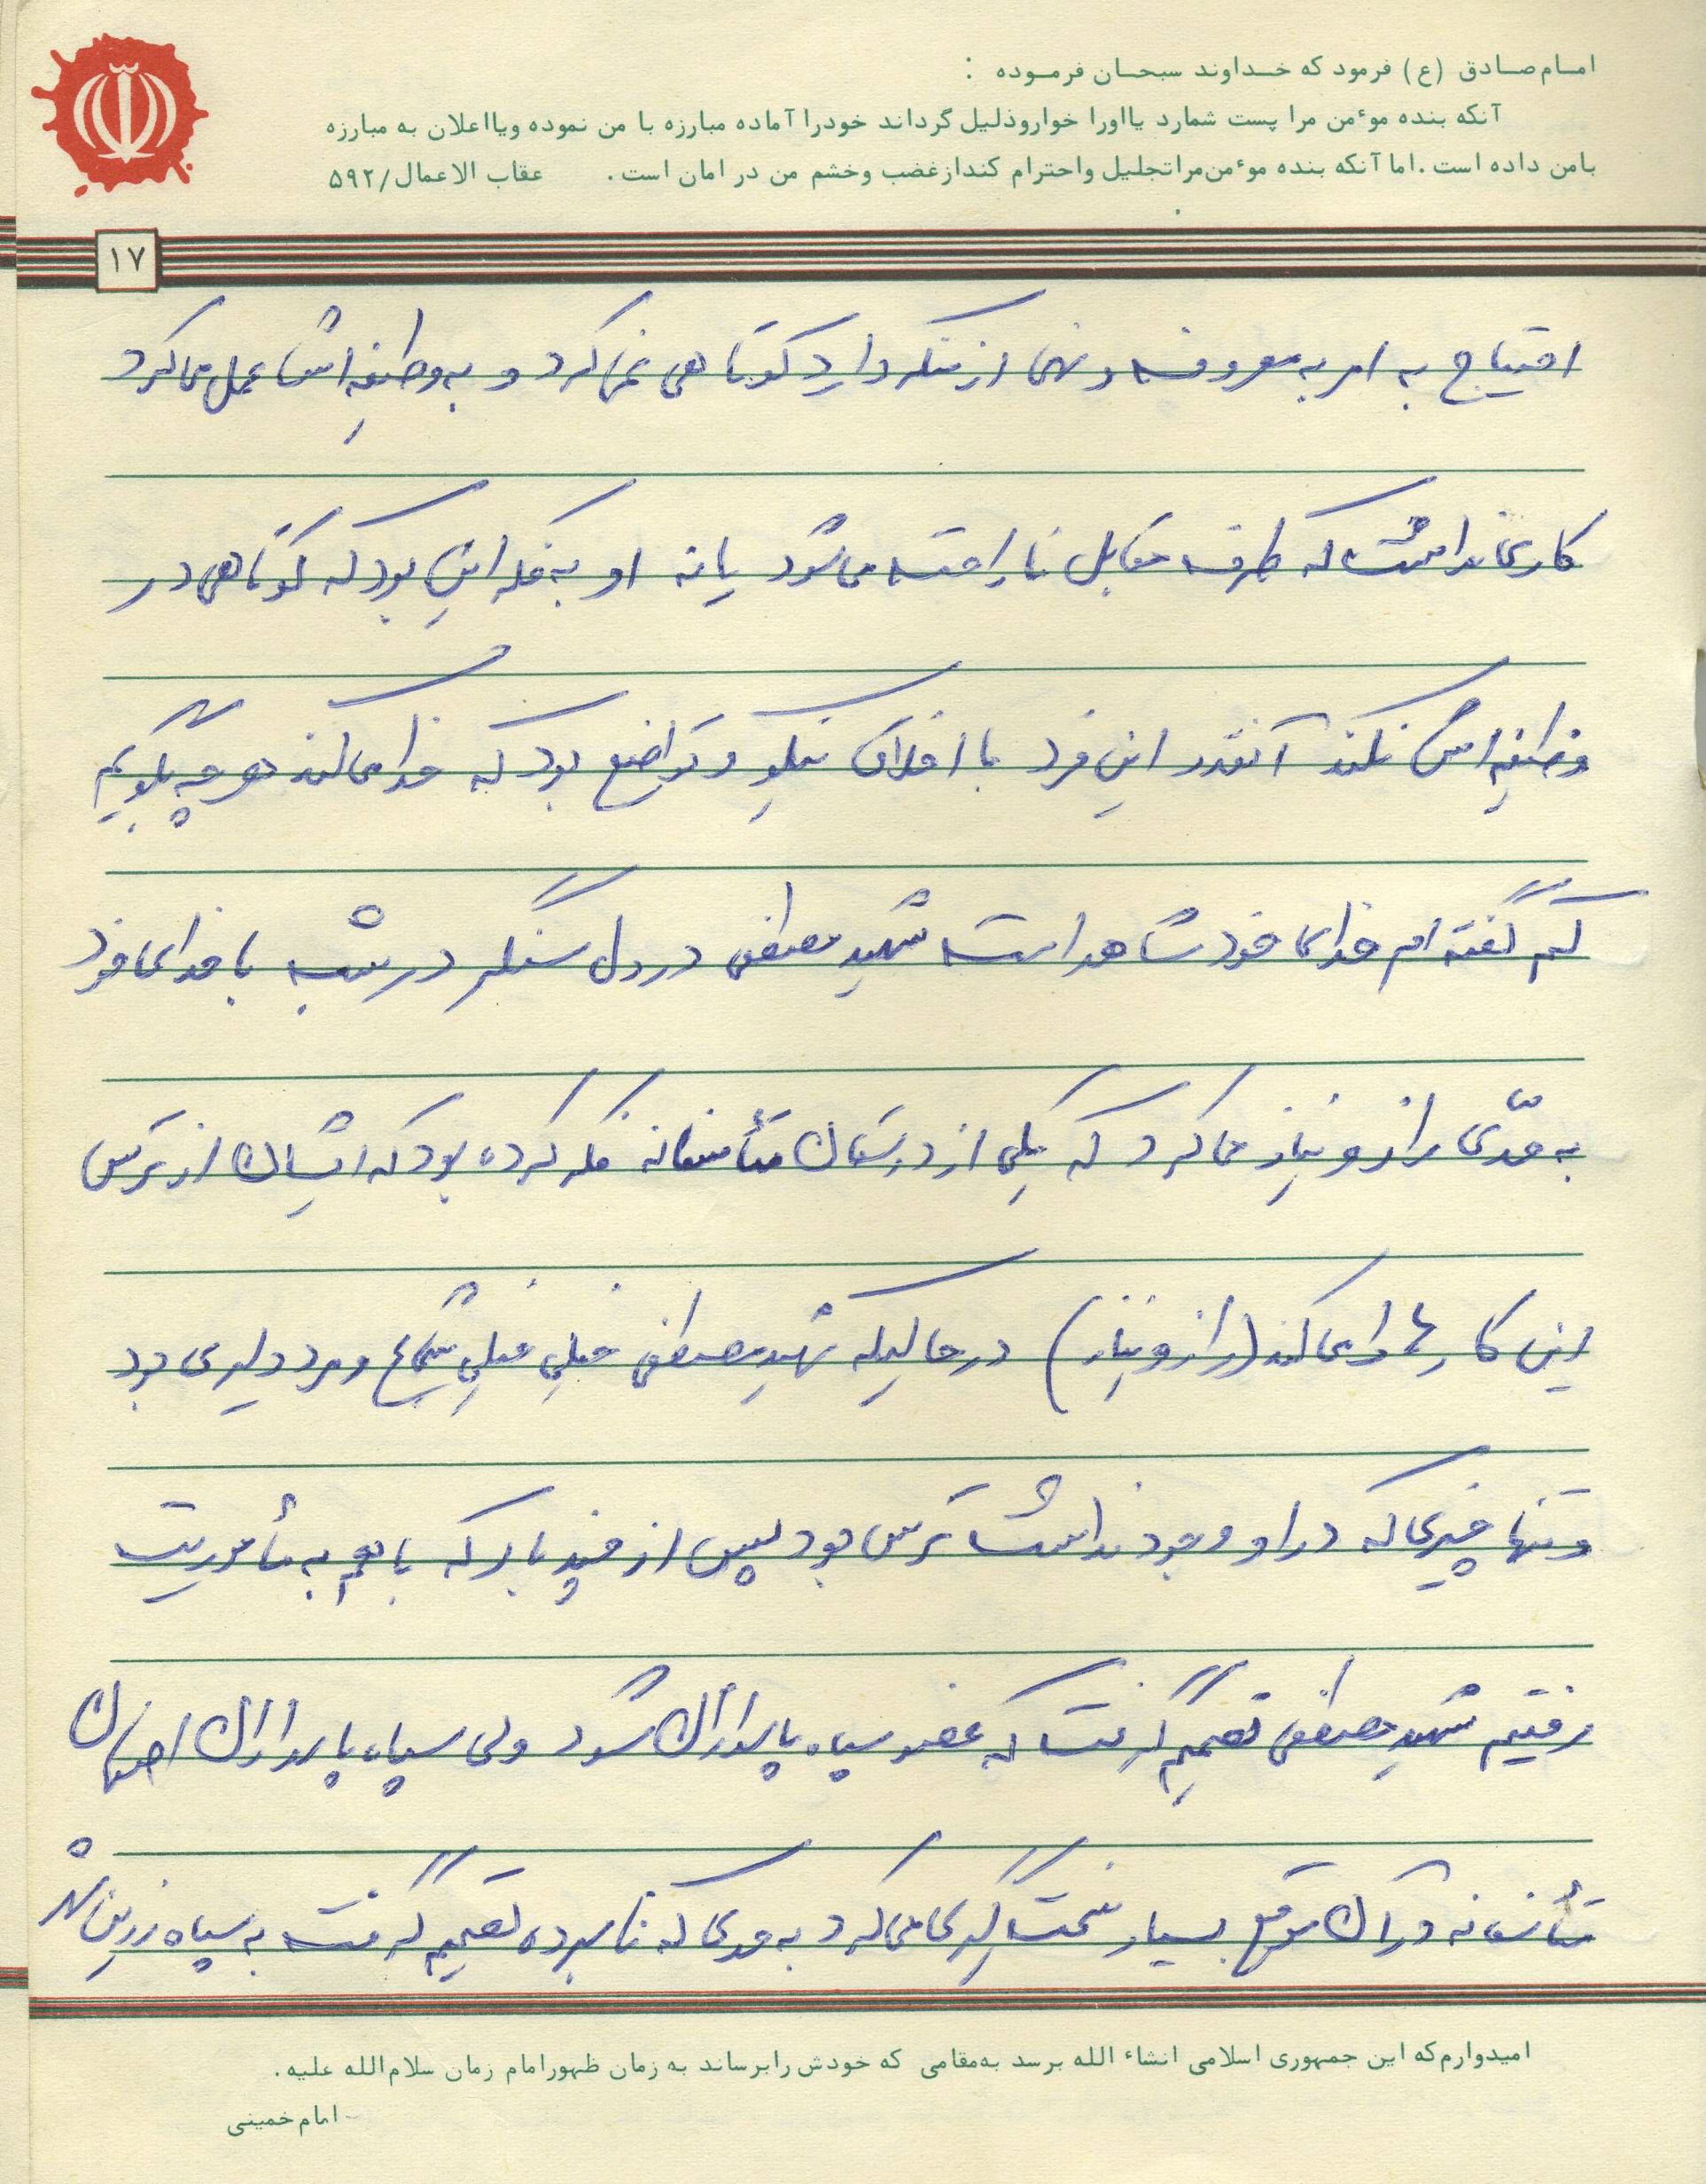 امام صادق (ع) فرمود که خداوند سبحان فرموده :
آنکه بنده موءمن مرا پست شمارد یااورا خواروذلیل گرداند خودرا آماده مبارزه با من نموده ویااعلان به مبارزه
بامن داده است . اما آنکه بنده موءمن مراتجلیل واحترام کندازغضب وخشم من در امان است . عقاب الاعمال/۵۹۲
۱۷
احتیاج به امر به معروف و نهی از منکر دارد کوتاهی نمی کرد و به وظیفه اش عمل می کرد
کاری نداشت که طرف مقابل ناراحت می شود یا نه او به فکر این بود که کوتاهی در
وظیفه اش نکند آنقدر این فرد با اخلاق نیکو و تواضع بود که خدا می داند هر چه بگویم
کم گفته ام خدای خود شاهد است شهید مصطفی در دل سنگر در شب با خدای خود
به حدّی راز و نیاز می کرد که یکی از دوستان متأسفانه فکر کرده بود که ایشان از ترس
این کارها را می کند (راز و نیاز) در حالیکه شهید مصطفی خیلی خیلی شجاع و مرد دلیری بود
و تنها چیزی که در او وجود نداشت ترس بود سپس از چند بار که با هم به مأموریت
رفتیم شهید مصطفی تصمیم گرفت که عضو سپاه پاسداران شود ولی سپاه پاسداران اصفهان
متأسفانه در آن موقع بسیار سخت گیری می کرد به حدی که نامبرده تصمیم گرفت به سپاه زرین شهر
امیدوارم که این جمهوری اسلامی انشاء الله برسد به مقامی که خودش رابرساند به زمان ظهورامام زمان سلام الله علیه .
امام خمینی